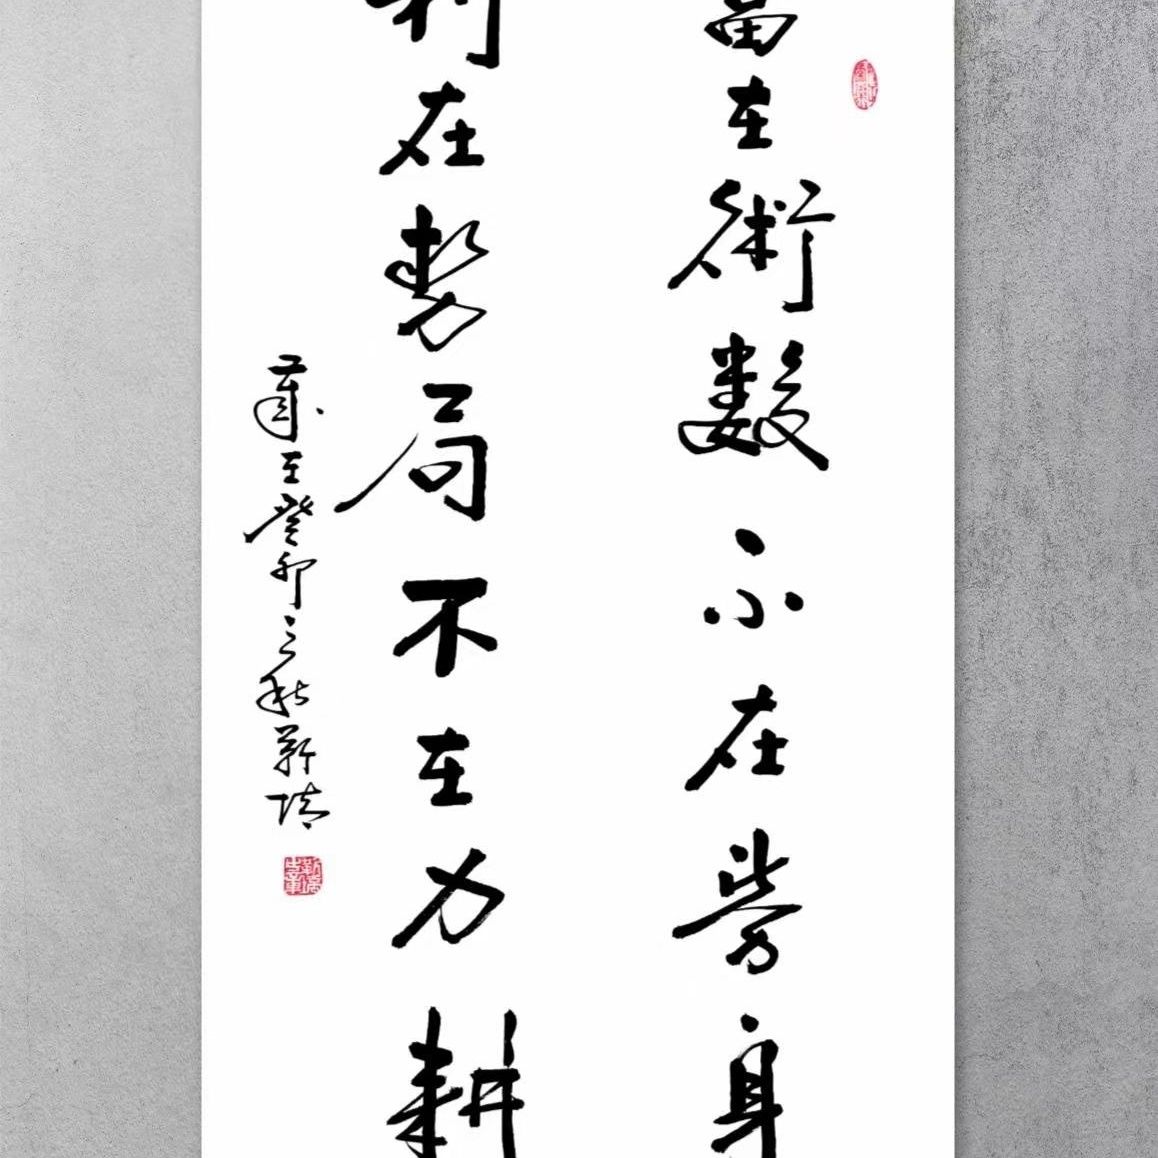 富在術數不在勞身
利在勢局不在力耕
歲在癸卯之秋靳